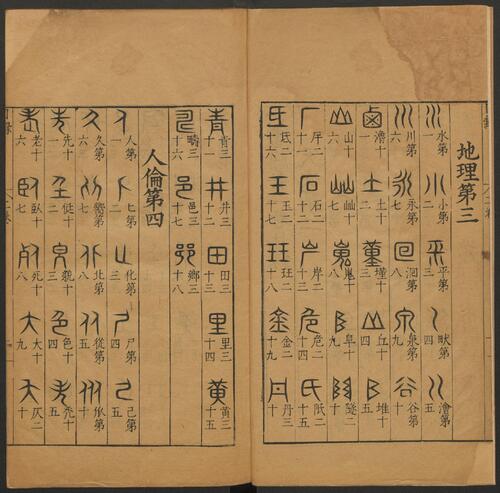 地理第三
水第一 小第二 平第三 畎第四 澮第五
川第六 永第七 洄第八 泉第九 谷第十
滷十一 土十二 墐十三 丘十四 堆十五
山十六 屾十七 嵬十八 阜十九 二十
厈二十一 石二十二 岸二十三 危二十四 阺二十五
二十六 王二十七 玨二十八 金二十九 丹三十
青三十一 井三十二 田三十三 里三十四 黃三十五
疇三十六 邑三十七 鄉三十八
人倫第四
人第一 匕第二 化第三 尸第四 己第五
久第六 第七 北第八 從第九 第十
先十一 十二 貌十三 色十四 禿十五
老十六 臥十七 死十八 大十九 仄二十